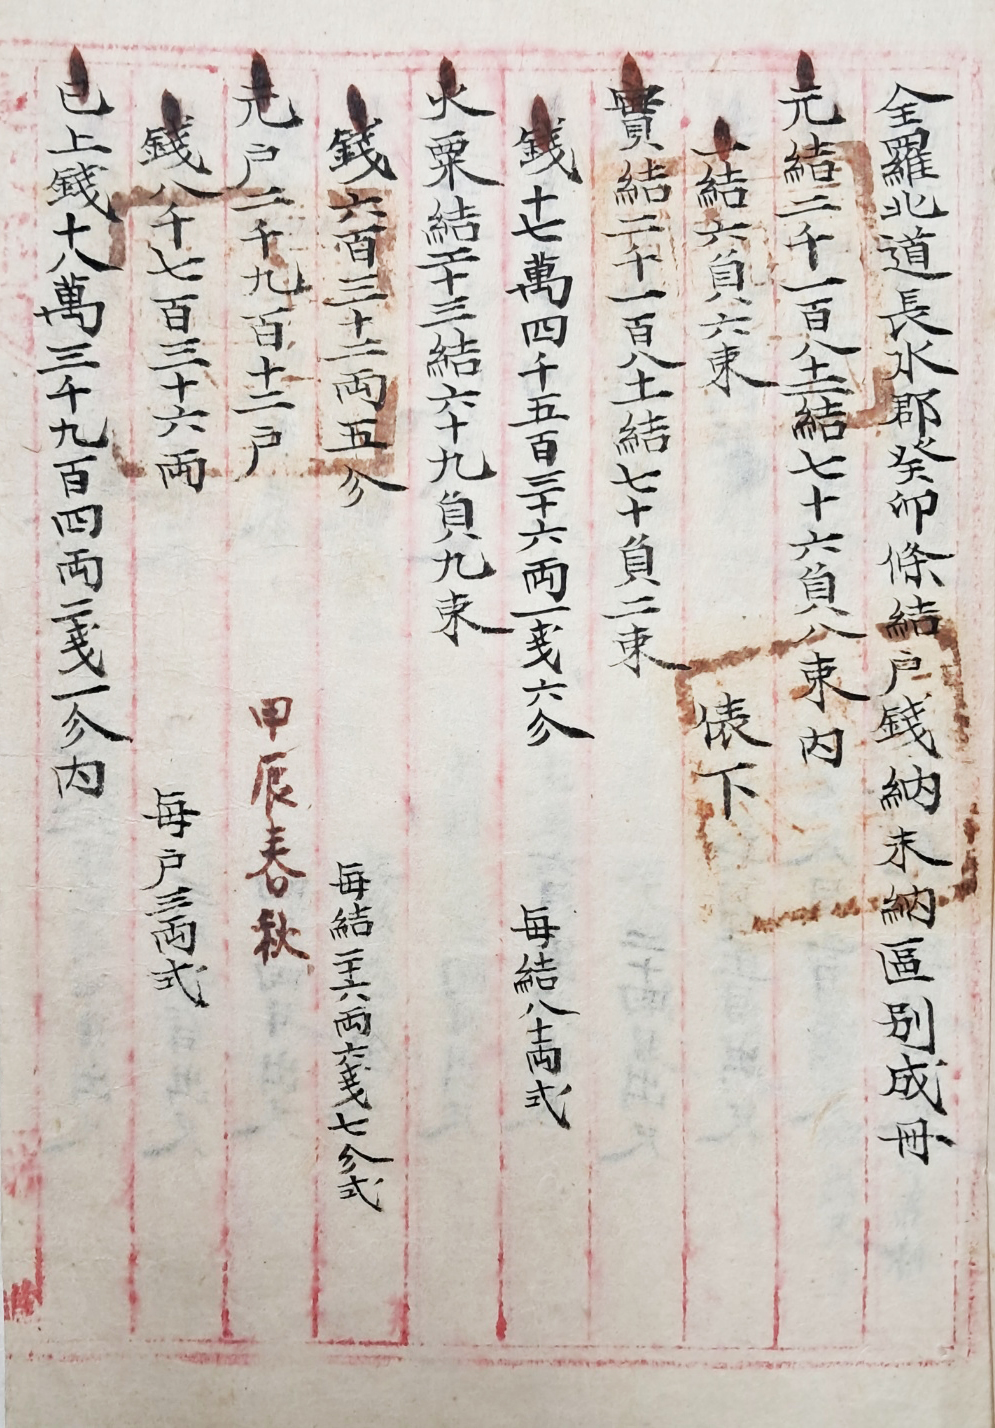 全羅北道長水郡癸卯條結戶錢納未納區別成冊
元結二千一百八十二結七十六負八束內
一結六負六束 俵下
實結二千一百八十一結七十負二束
錢十七萬四千五百三十六両一戔六分 每結八十両式
火粟結二十三結六十九負九束
錢六百三十二両五分 每結二十六両六戔七分式
元戶二千九百十二戶 甲辰春秋
錢八千七百三十六両 每戶三両式
已上錢十八萬三千九百四両二戔一分內